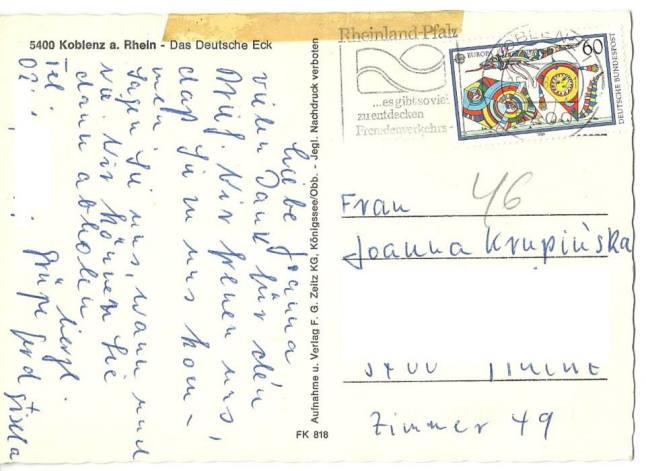 5400 Koblenz a. Rhein - Das Deutsche Eck
Liebe Joanna
vielen Dank für den
Brief. Wir freuen uns,
daß Sie zu uns kom-
men.
Sagen Sie uns, wann und
wo. Wir können Sie
dann abholen
Tel.:
02
herzl.
Grüße Gerd Gisela
Aufnahme u. Verlag F. G. Zeitz KG, Königssee/Obb. - Jegl. Nachdruck verboten
FK 818
Rheinland-Pfalz
...es gibt so viel
zu entdecken
Fremdenverkehrs-
EUROPA
60
DEUTSCHE BUNDESPOST
46
Frau
Joanna Krupińska
Zimmer 49